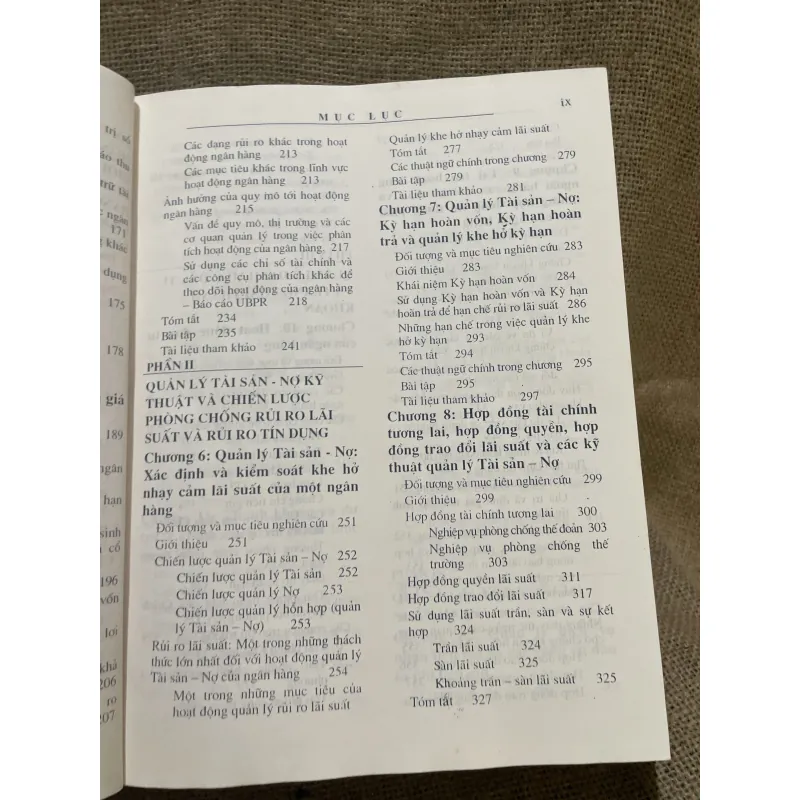 trị số
171
khác
dụng
175
178
giá
189
ngân
hạn
sinh
196
vốn
lợi
206
ro
207
MỤC LỤC
ix
Các dạng rủi ro khác trong hoạt
động ngân hàng 213
Các mục tiêu khác trong lĩnh vực
hoạt động ngân hàng 213
Ảnh hưởng của quy mô tới hoạt động
ngân hàng 215
Vấn đề quy mô, thị trường và các
cơ quan quản lý trong việc phân
tích hoạt động của ngân hàng. 217
Sử dụng các chỉ số tài chính và
các công cụ phân tích khác để
theo dõi hoạt động của ngân hàng
– Báo cáo UBPR 218
Tóm tắt 234
Bài tập 235
Tài liệu tham khảo 241
PHẦN II
QUẢN LÝ TÀI SẢN - NỢ KỸ
THUẬT VÀ CHIẾN LƯỢC
PHÒNG CHỐNG RỦI RO LÃI
SUẤT VÀ RỦI RO TÍN DỤNG
Chương 6: Quản lý Tài sản - Nợ:
Xác định và kiểm soát khe hở
nhạy cảm lãi suất của một ngân
hàng
Đối tượng và mục tiêu nghiên cứu 251
Giới thiệu 251
Chiến lược quản lý Tài sản – Nợ 252
Chiến lược quản lý Tài sản 252
Chiến lược quản lý Nợ 253
Chiến lược quản lý hỗn hợp (quản
lý Tài sản – Nợ) 253
Rủi ro lãi suất: Một trong những thách
thức lớn nhất đối với hoạt động quản lý
Tài sản – Nợ của ngân hàng 254
Một trong những mục tiêu của
hoạt động quản lý rủi ro lãi suất
Quản lý khe hở nhạy cảm lãi suất
Tóm tắt 277
Các thuật ngữ chính trong chương 279
Bài tập 279
Tài liệu tham khảo 281
Chương 7: Quản lý Tài sản – Nợ:
Kỳ hạn hoàn vốn, Kỳ hạn hoàn
trả và quản lý khe hở kỳ hạn
Đối tượng và mục tiêu nghiên cứu 283
Giới thiệu 283
Khái niệm Kỳ hạn hoàn vốn 284
Sử dụng Kỳ hạn hoàn vốn và Kỳ hạn
hoàn trả để hạn chế rủi ro lãi suất 286
Những hạn chế trong việc quản lý khe
hở kỳ hạn 293
Tóm tắt 294
Các thuật ngữ chính trong chương 295
Bài tập 295
Tài liệu tham khảo 297
Chương 8: Hợp đồng tài chính
tương lai, hợp đồng quyền, hợp
đồng trao đổi lãi suất và các kỹ
thuật quản lý Tài sản – Nợ
Đối tượng và mục tiêu nghiên cứu 299
Giới thiệu 299
Hợp đồng tài chính tương lai 300
Nghiệp vụ phòng chống thế đoản 303
Nghiệp vụ phòng chống thế
trường 303
Hợp đồng quyền lãi suất 311
Hợp đồng trao đổi lãi suất 317
Sử dụng lãi suất trần, sàn và sự kết
hợp 324
Trần lãi suất 324
Sàn lãi suất 325
Khoảng trần – sàn lãi suất 325
Tóm tắt 327